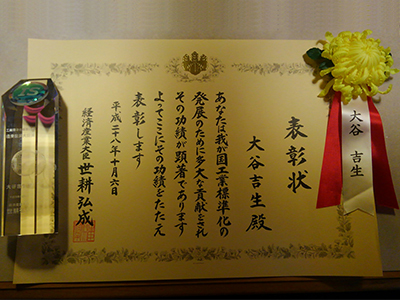 表彰状
大谷吉生殿
あなたは我が国工業標準化の
発展のために多大な貢献をされ
その功績が顕著であります
よってここにその功績をたたえ
表彰します
平成二十八年十月六日
経済産業大臣 世耕弘成
大谷 吉生